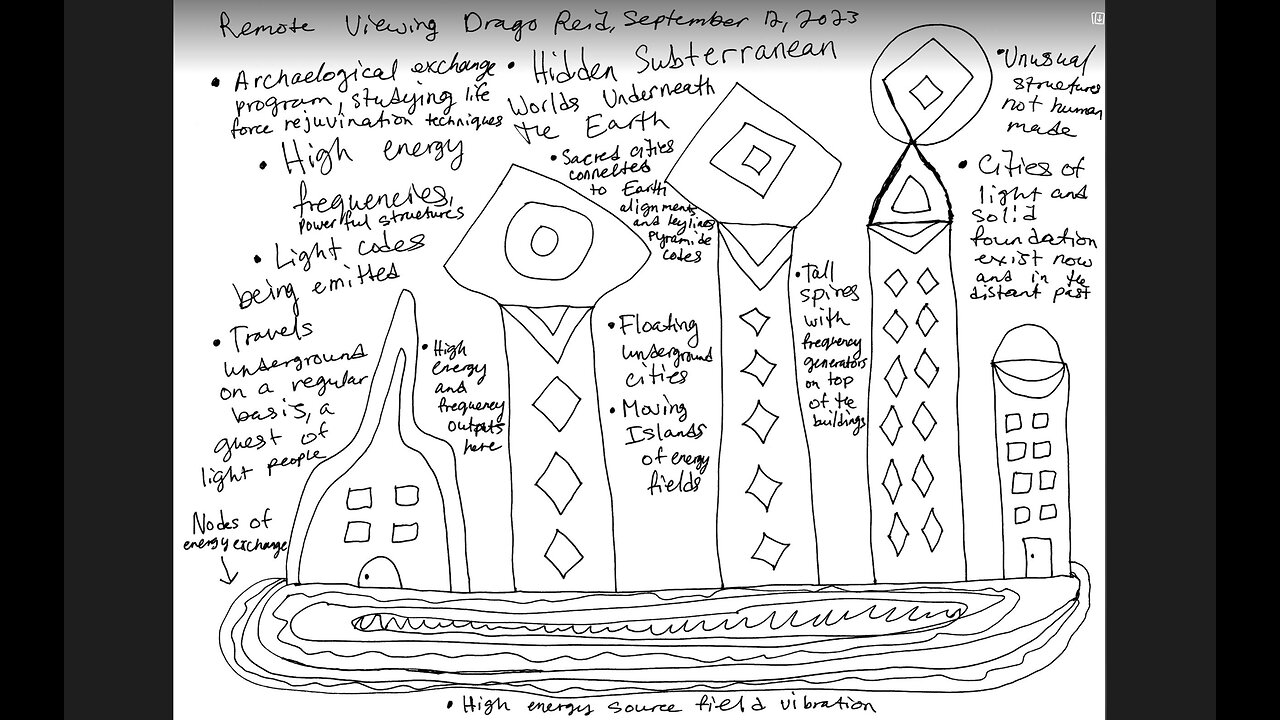 Remote Viewing Drago Reid, September 12, 2023
• Archaelogical exchange
program, studying life
force rejuvination techniques
• High energy
frequencies,
powerful structures
• Light codes
being emitted
• Travels
underground
on a regular
basis, a
guest of
light people
Nodes of
energy exchange
• High
energy
and
frequency
outputs
here
• Hidden Subterranean
Worlds Underneath
the Earth
• Sacred cities
connected
to Earth
alignments
and leylines
Pyramide
codes
• Floating
underground
cities
• Moving
Islands
of energy
fields
• Tall
spires
with
frequency
generators
on top
of the
buildings
• Unusual
structures
not human
made
• Cities of
light and
solid
foundation
exist now
and in the
distant past
• High energy source field vibration